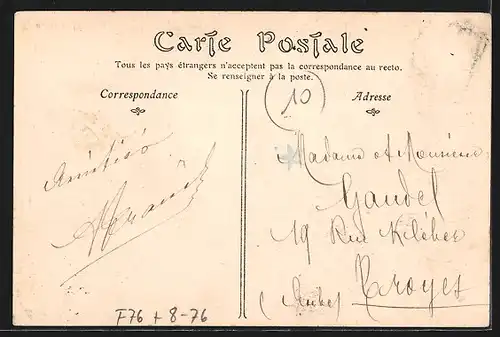 Carte Postale
Tous les pays étrangers n'acceptent pas la correspondance au recto.
Se renseigner à la poste.
Correspondance
Adresse
10
Amitiés
Madame et Monsieur
Gaudel
19 Rue Kiléber
Troyes
(Aube)
F76 + 8-76